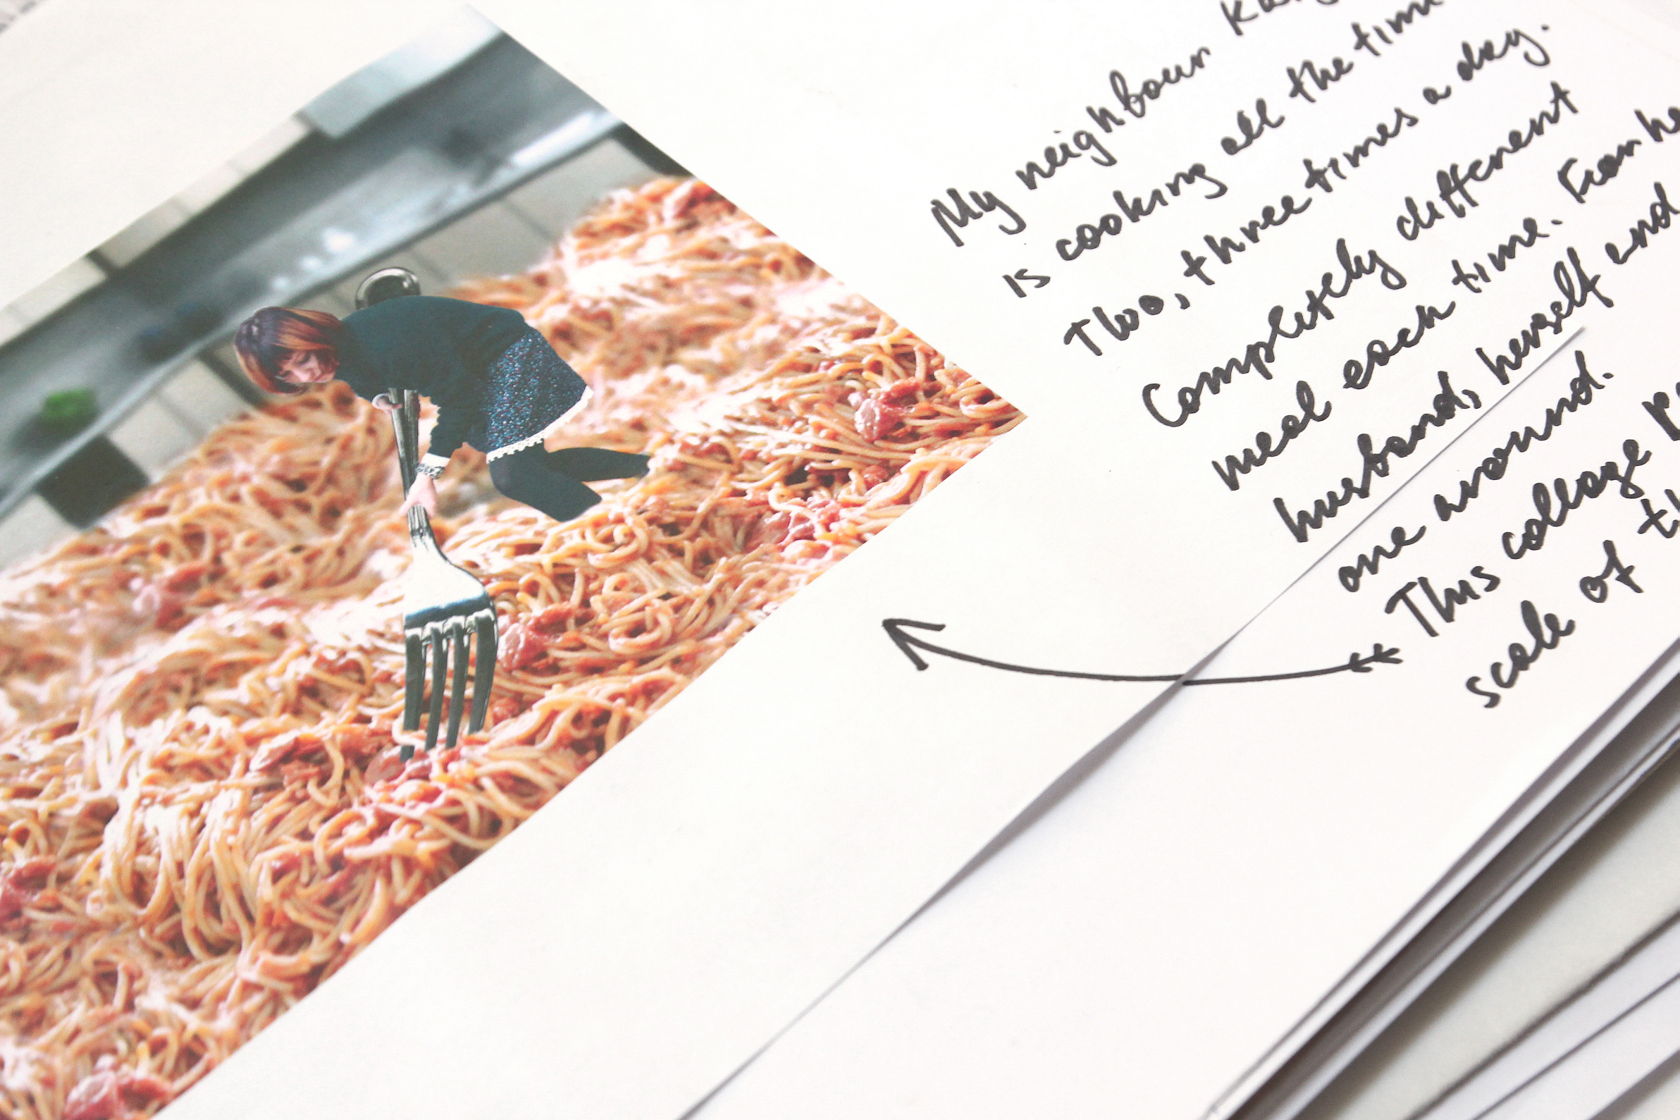 My neighbour
is cooking all the time
Two, three times a day.
Completely different
meal each time. For
husband, herself and
one around.
This collage
scale of